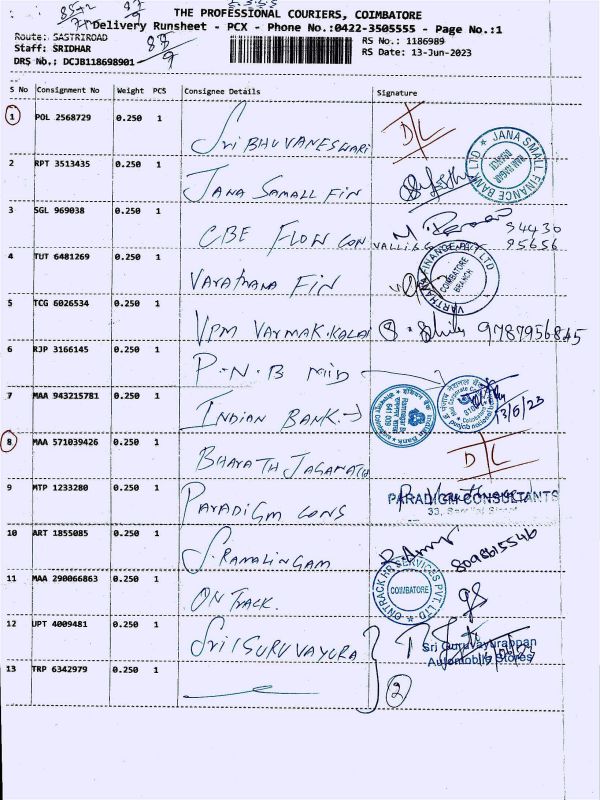 THE PROFESSIONAL COURIERS, COIMBATORE
Delivery Runsheet - PCX - Phone No.:0422-3505555 - Page No.:1
Route: SASTRIROAD
Staff: SRIDHAR
DRS No.: DCJB118698901
RS No.: 1186989
RS Date: 13-Jun-2023
S No Consignment No Weight PCS Consignee Details Signature
1 POL 2568729 0.250 1 Sri BHUVANESWARI D/L
2 RPT 3513435 0.250 1 JANA SAMALL FIN
JANA SMALL FINANCE BANK LTD
3 SGL 969038 0.250 1 CBE FLOW CON 94430
95656
4 TUT 6481269 0.250 1 VARATHANA FIN
VARTHANA FINANCE PVT LTD
COIMBATORE
BRANCH
5 TCG 6026534 0.250 1 VPM VARMAK.KALAI 9787956845
6 RJP 3166145 0.250 1 P.N.B MID
7 MAA 943215781 0.250 1 INDIAN BANK 13/6/23
Indian Bank
641 009
8 MAA 571039426 0.250 1 BHARATH JAGANATH D/L
9 MTP 1233280 0.250 1 PARADIGM CONS
PARADIGM CONSULTANTS
10 ART 1855085 0.250 1 S.RAMALINGAM 8098615546
11 MAA 290066863 0.250 1 ON TRACK.
ONTRACK HR SERVICES PVT. LTD
COIMBATORE
12 UPT 4009481 0.250 1 Sri GURUVAYURA
Sri Guruvayurappan
Automobile Stores
13 TRP 6342979 0.250 1 2